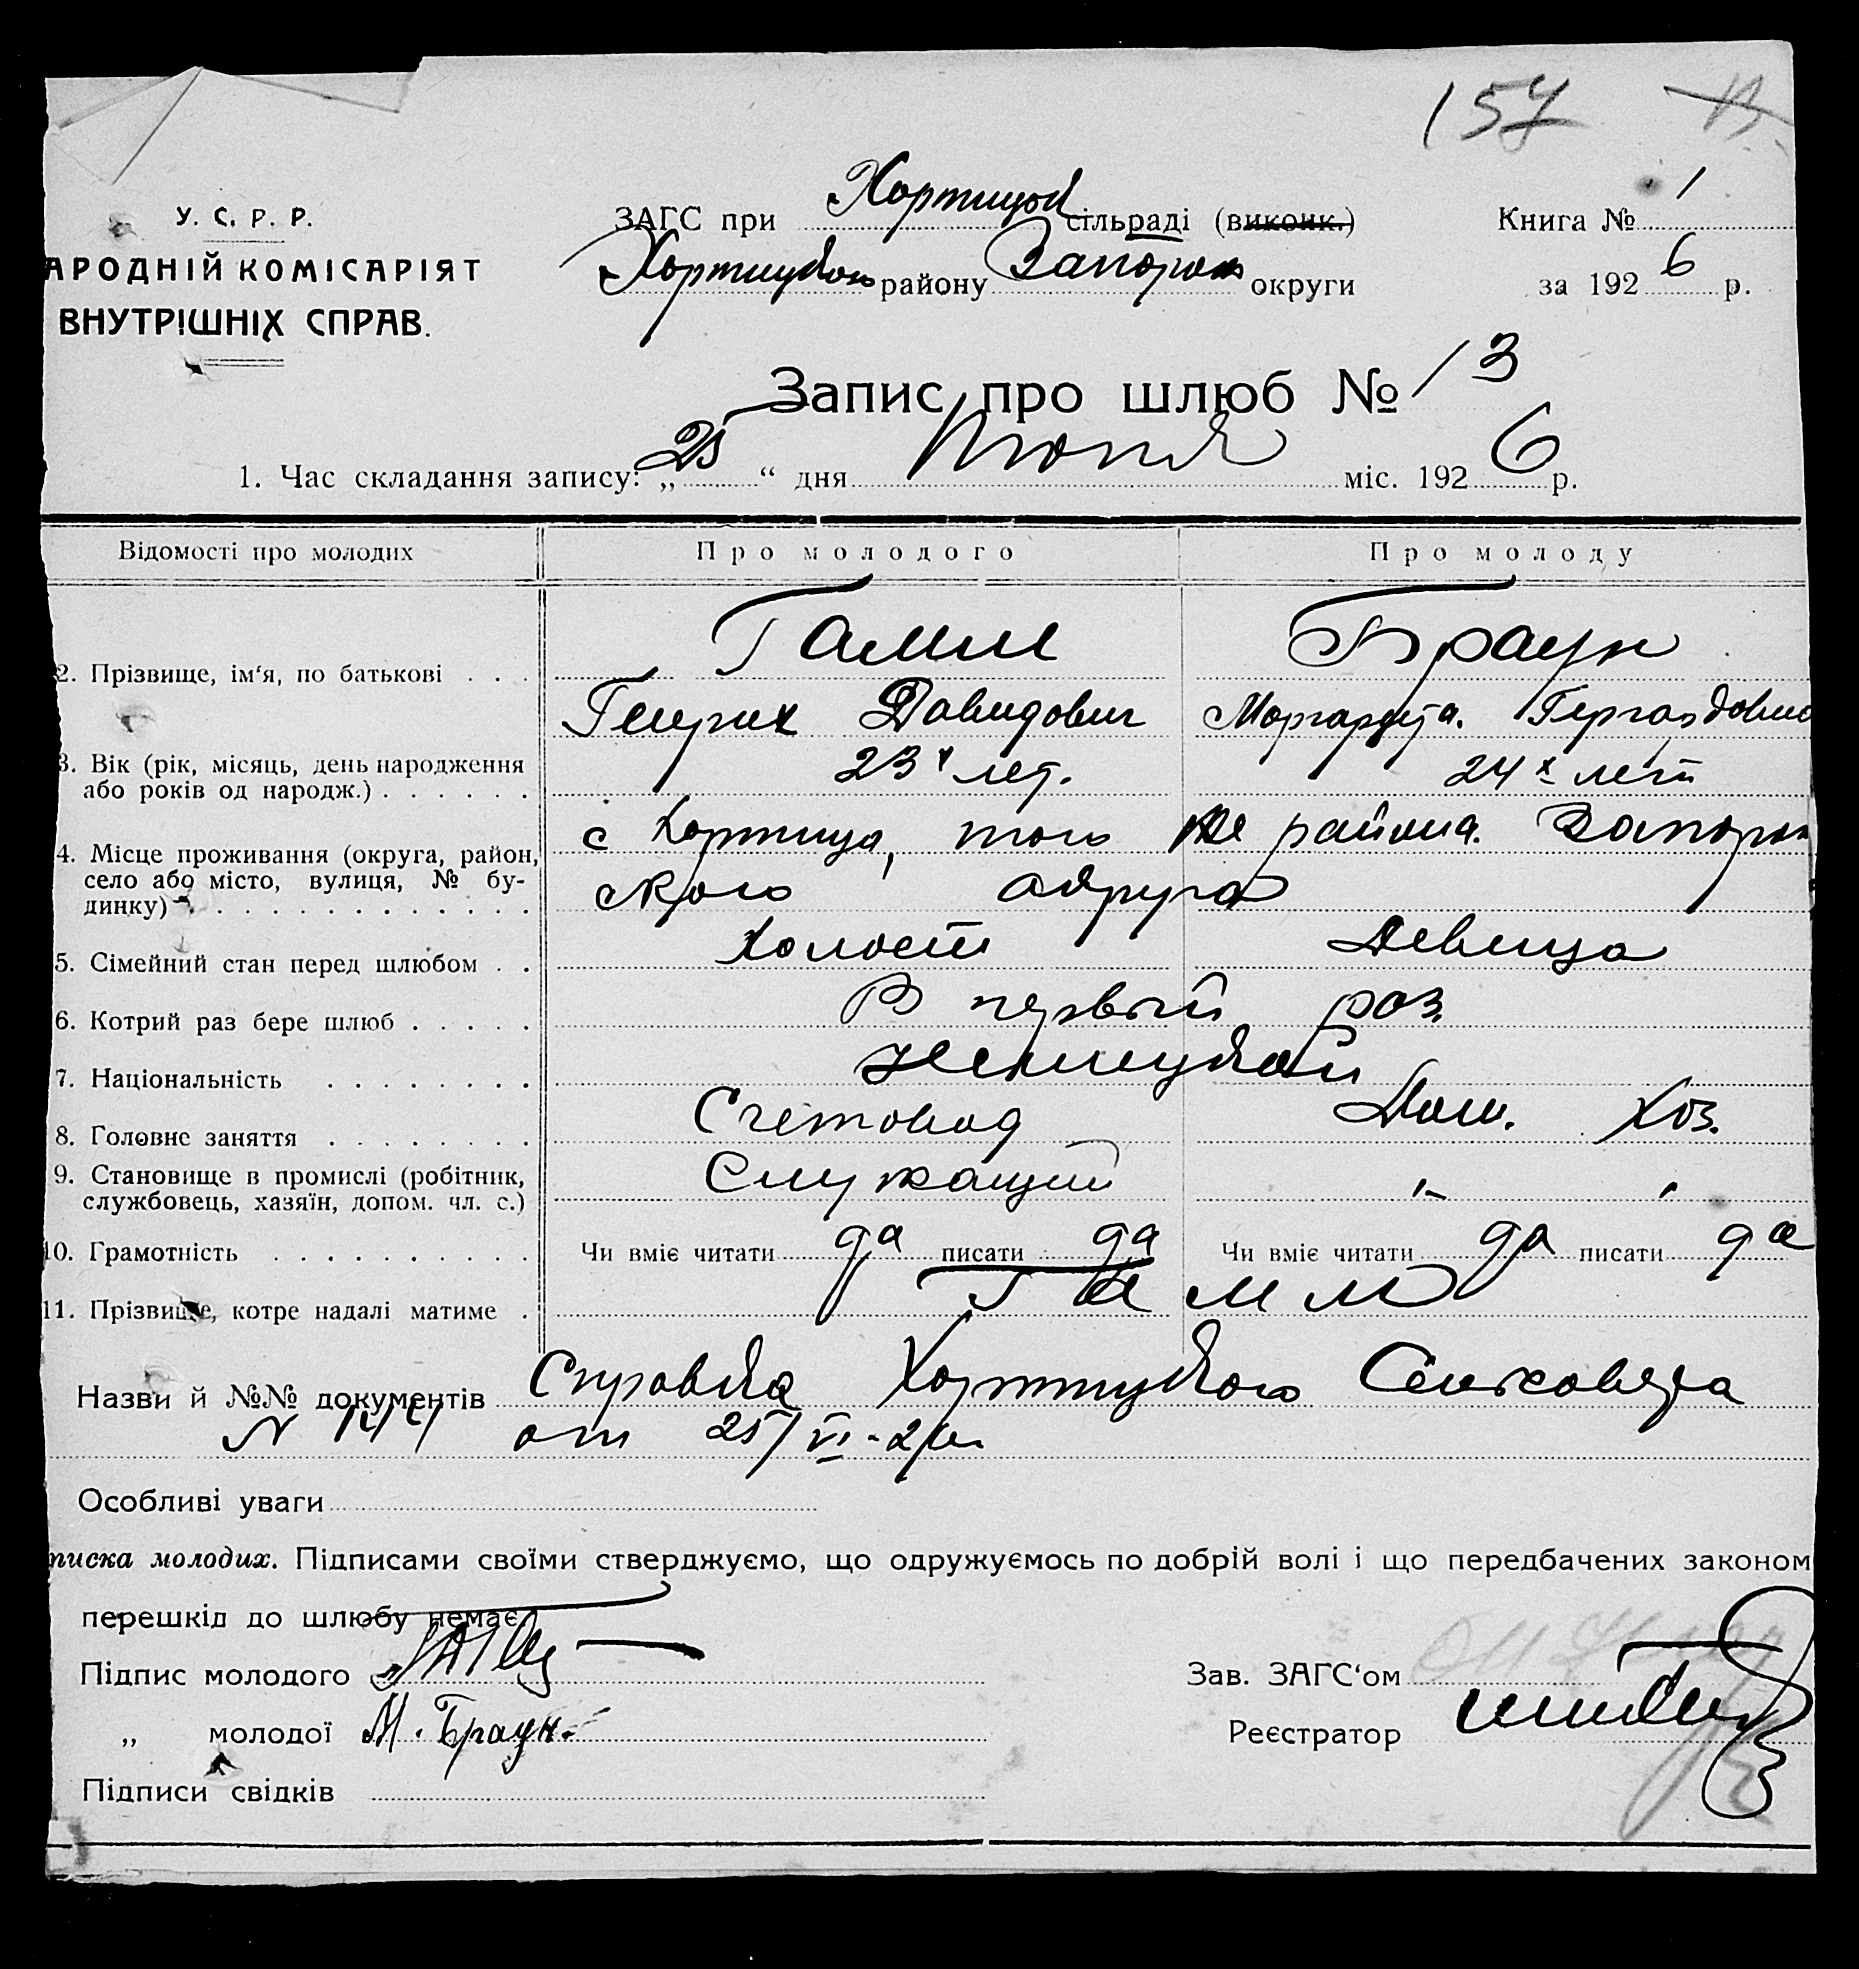 157
У. С. Р. Р.
АРОДНІЙ КОМІСАРІЯТ
ВНУТРІШНІХ СПРАВ.
ЗАГС при Хортицкой сільраді (виконк.)
Хортицкого району Запорож округи
Книга № 1
за 192 6 р.
Запис про шлюб № 13
1. Час складання запису: „ 25 “ дня Июня міс. 192 6 р.
Відомості про молодих Про молодого Про молоду
2. Прізвище, ім‘я, по батькові . . . Гамм Браун
Генрих Давидович Маргарета Гергардовна
3. Вік (рік, місяць, день народження
або років од народж.) . . . . . . 23х лет. 24х лет
4. Місце проживання (округа, район,
село або місто, вулиця, № бу-
динку) . . . . . . . . . . . . . с Хортица, того же района. Запорож
ского округа
5. Сімейний стан перед шлюбом . . Холост Девица
6. Котрий раз бере шлюб . . . . . В первый раз.
7. Національність . . . . . . . . Немецкой
8. Головне заняття . . . . . . . . Счетовод Дом. Хоз.
9. Становище в промислі (робітник,
службовець, хазяїн, допом. чл. с.) Служащий "- "
10. Грамотність . . . . . . . . . . Чи вміє читати да писати да Чи вміє читати да писати да
11. Прізвище, котре надалі матиме . Гамм
Назви й №№ документів Справка Хортицкого Сельсовета
N 144 от 25/VI-26г.
Особливі уваги
писка молодих. Підписами своїми стверджуємо, що одружуємось по добрій волі і що передбачених законом
перешкід до шлюбу немає.
Підпис молодого
Зав. ЗАГС‘ом
„ молодої М. Браун.
Реєстратор
Підписи свідків